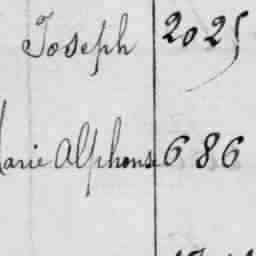 Joseph 2025
Marie Alphonse 686